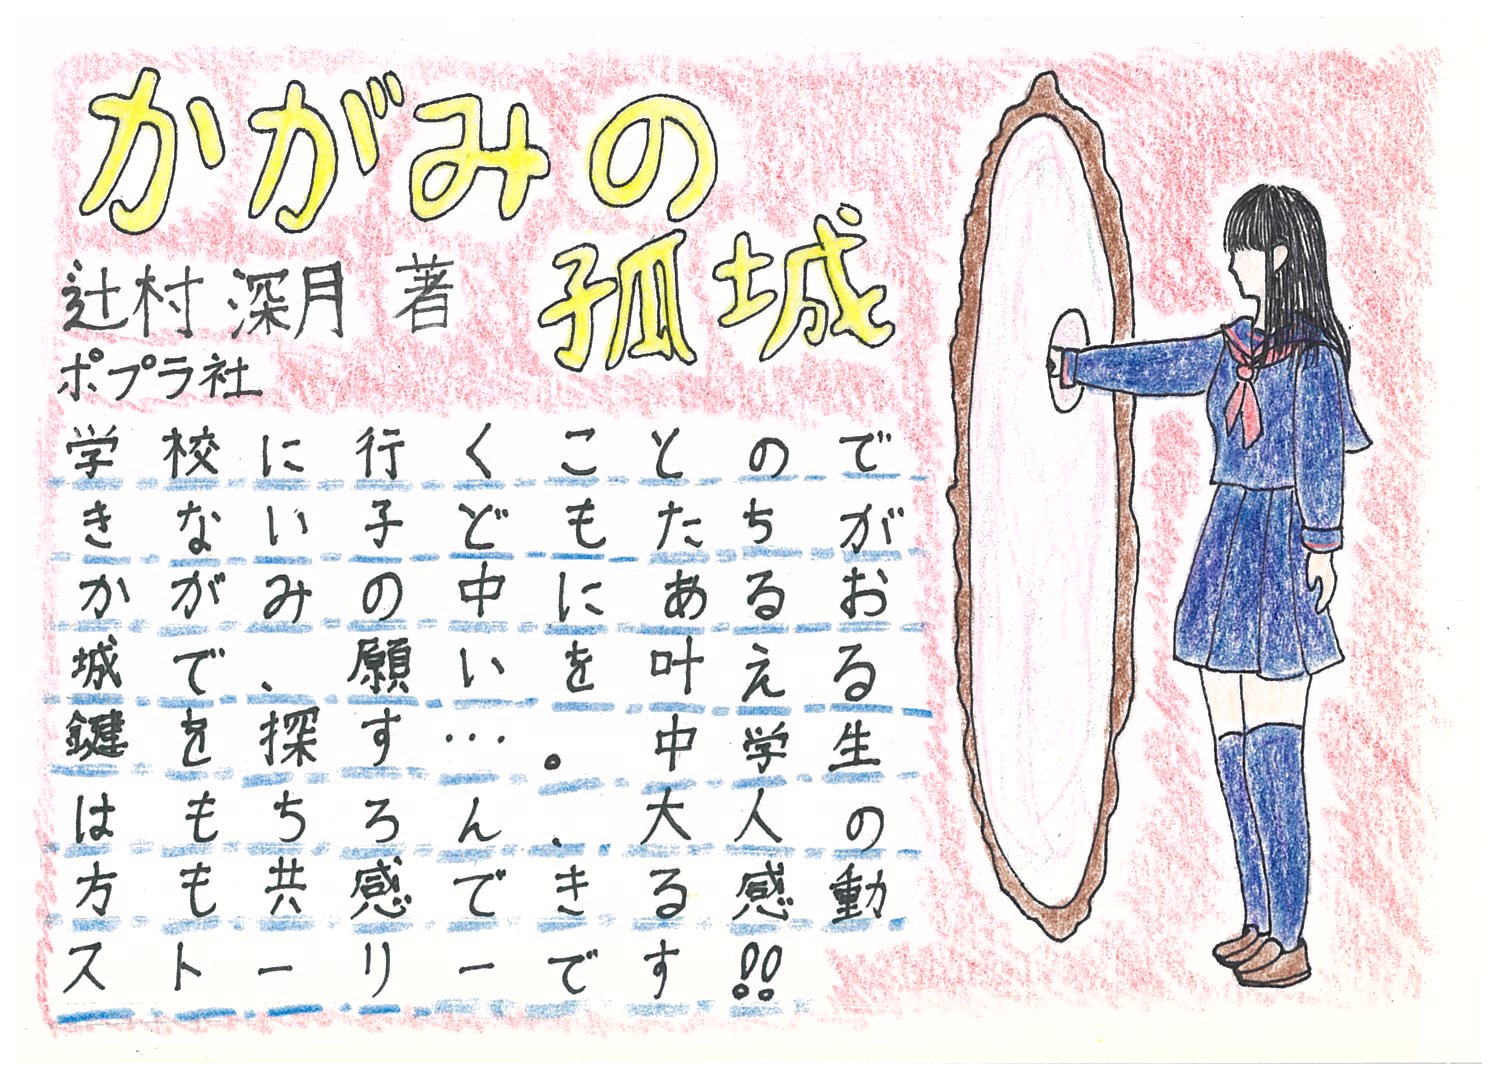 かがみの
孤城
辻村 深月 著
ポプラ社
学校に行くことので
きない子どもたちが
かがみの中にあるお
城で、願いを叶える
鍵を探す…。中学生
はもちろん、大人の
方も共感できる感動
ストーリーです!!